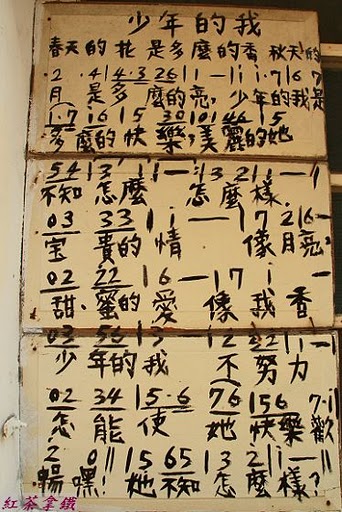 少年的我
春天的花是多麼的香秋天的
2 · 4 | 4 · 3 26 | 1 — | i i · 7 | 6 7
月是多麼的亮,少年的我是
多麼的快樂,美麗的她
不知怎麼怎麼樣.
03 33 | 1 i — | 1 7 2 1 6 —
寶貴的情像月亮
02 22 | 1 6 — | 1 7 i —
甜.蜜的愛像我香
少年的我不努力
02 34 | 1 5 · 6 | 76 156 | 7 · i
怎能使她快樂歡
暢嘿!她不知怎麼樣?
紅茶拿鐵